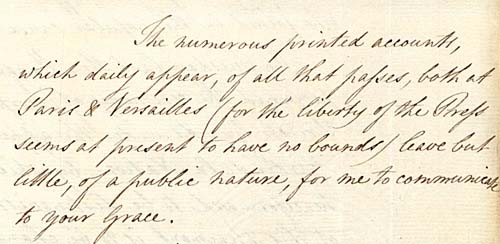 The numerous printed accounts,
which daily appear, of all that passes, both at
Paris & Versailles (for the liberty of the Press
seems at present to have no bounds) leave but
little, of a public nature, for me to communicate
to your Grace.